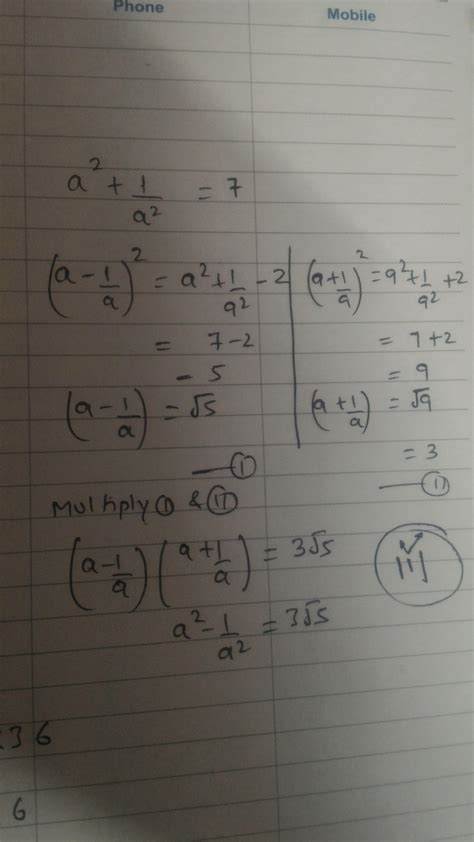 Phone Mobile
a² + 1/a² = 7
(a - 1/a)² = a² + 1/a² - 2
= 7 - 2
- 5
(a - 1/a) = √5
—— (I)
(a + 1/a)² = a² + 1/a² + 2
= 7 + 2
= 9
(a + 1/a) = √9
= 3
—— (II)
Multiply (I) & (II)
(a - 1/a) (a + 1/a) = 3√5
a² - 1/a² = 3√5
36
6